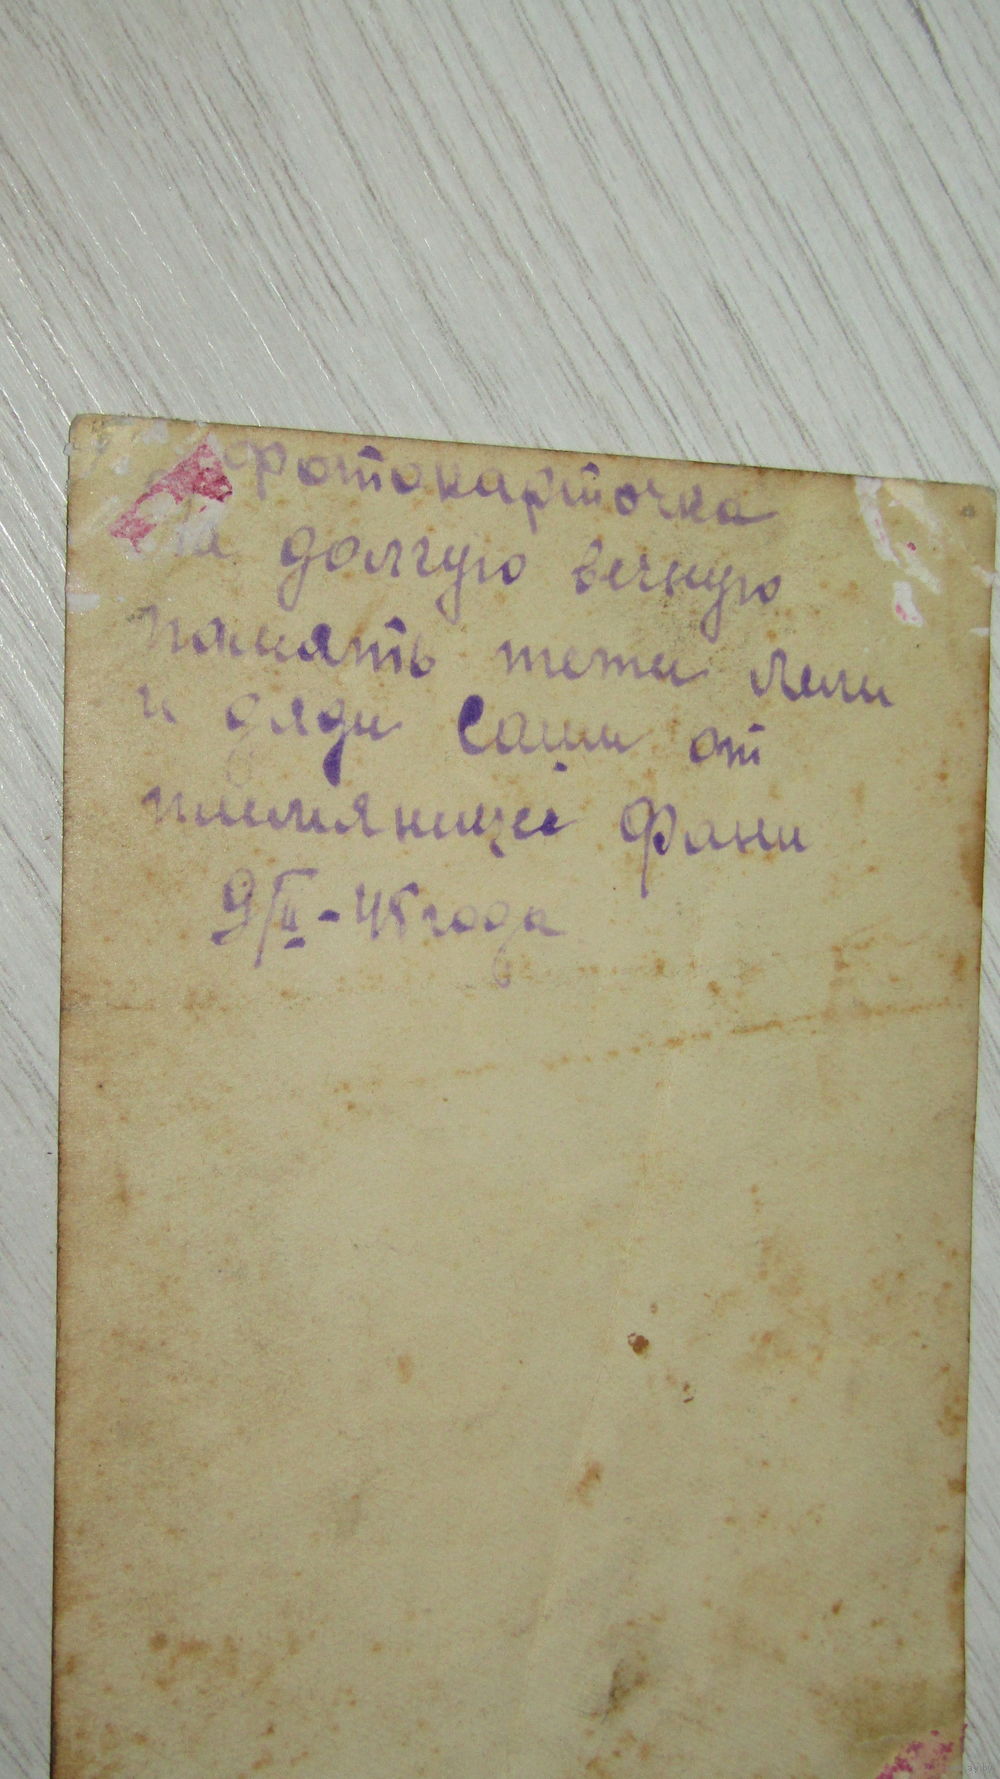 фотокарточка
на долгую вечную
память тети Лели
и дяди Саши от
племяницы Фани
9/II - 45 года